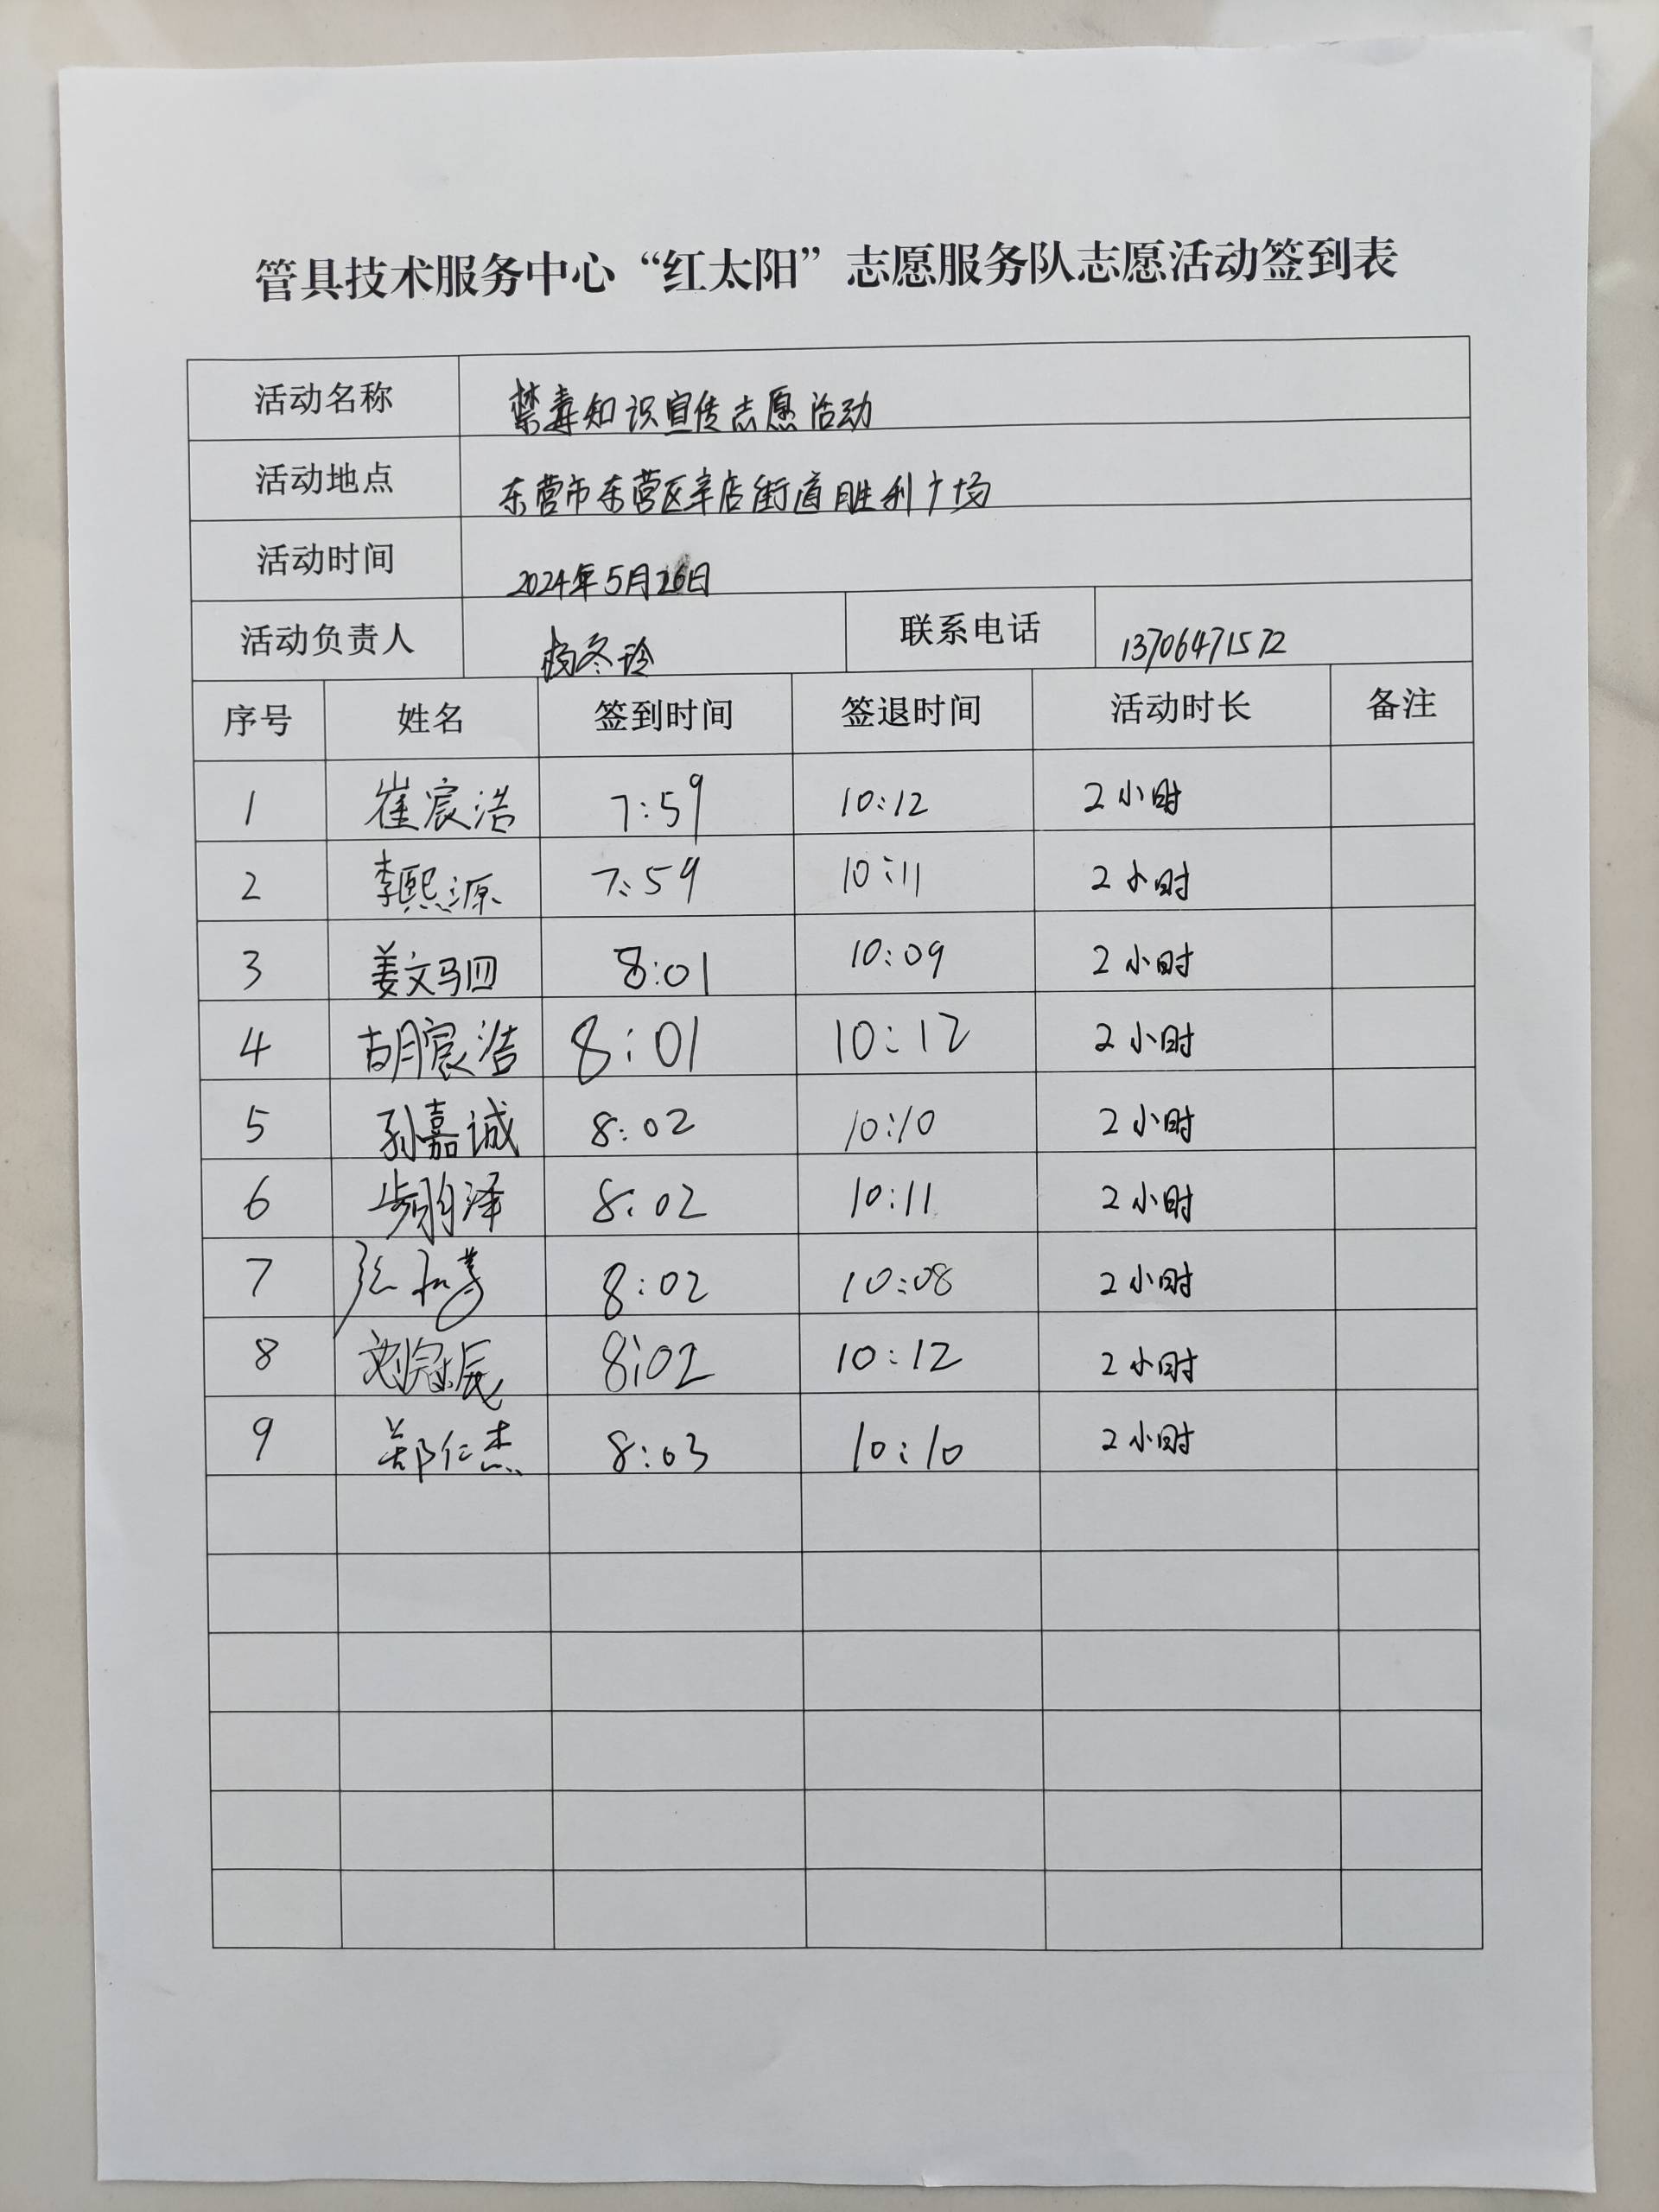 管具技术服务中心“红太阳”志愿服务队志愿活动签到表
活动名称 禁毒知识宣传志愿活动
活动地点 东营市东营区辛店街道胜利广场
活动时间 2024年5月26日
活动负责人 杨冬玲 联系电话 13706471572
序号 姓名 签到时间 签退时间 活动时长 备注
1 崔宸浩 7:59 10:12 2小时
2 李熙源 7:59 10:11 2小时
3 姜文驷 8:01 10:09 2小时
4 胡宸浩 8:01 10:12 2小时
5 孙嘉诚 8:02 10:10 2小时
6 8:02 10:11 2小时
7 8:02 10:08 2小时
8 刘冠辰 8:02 10:12 2小时
9 郑仁杰 8:03 10:10 2小时